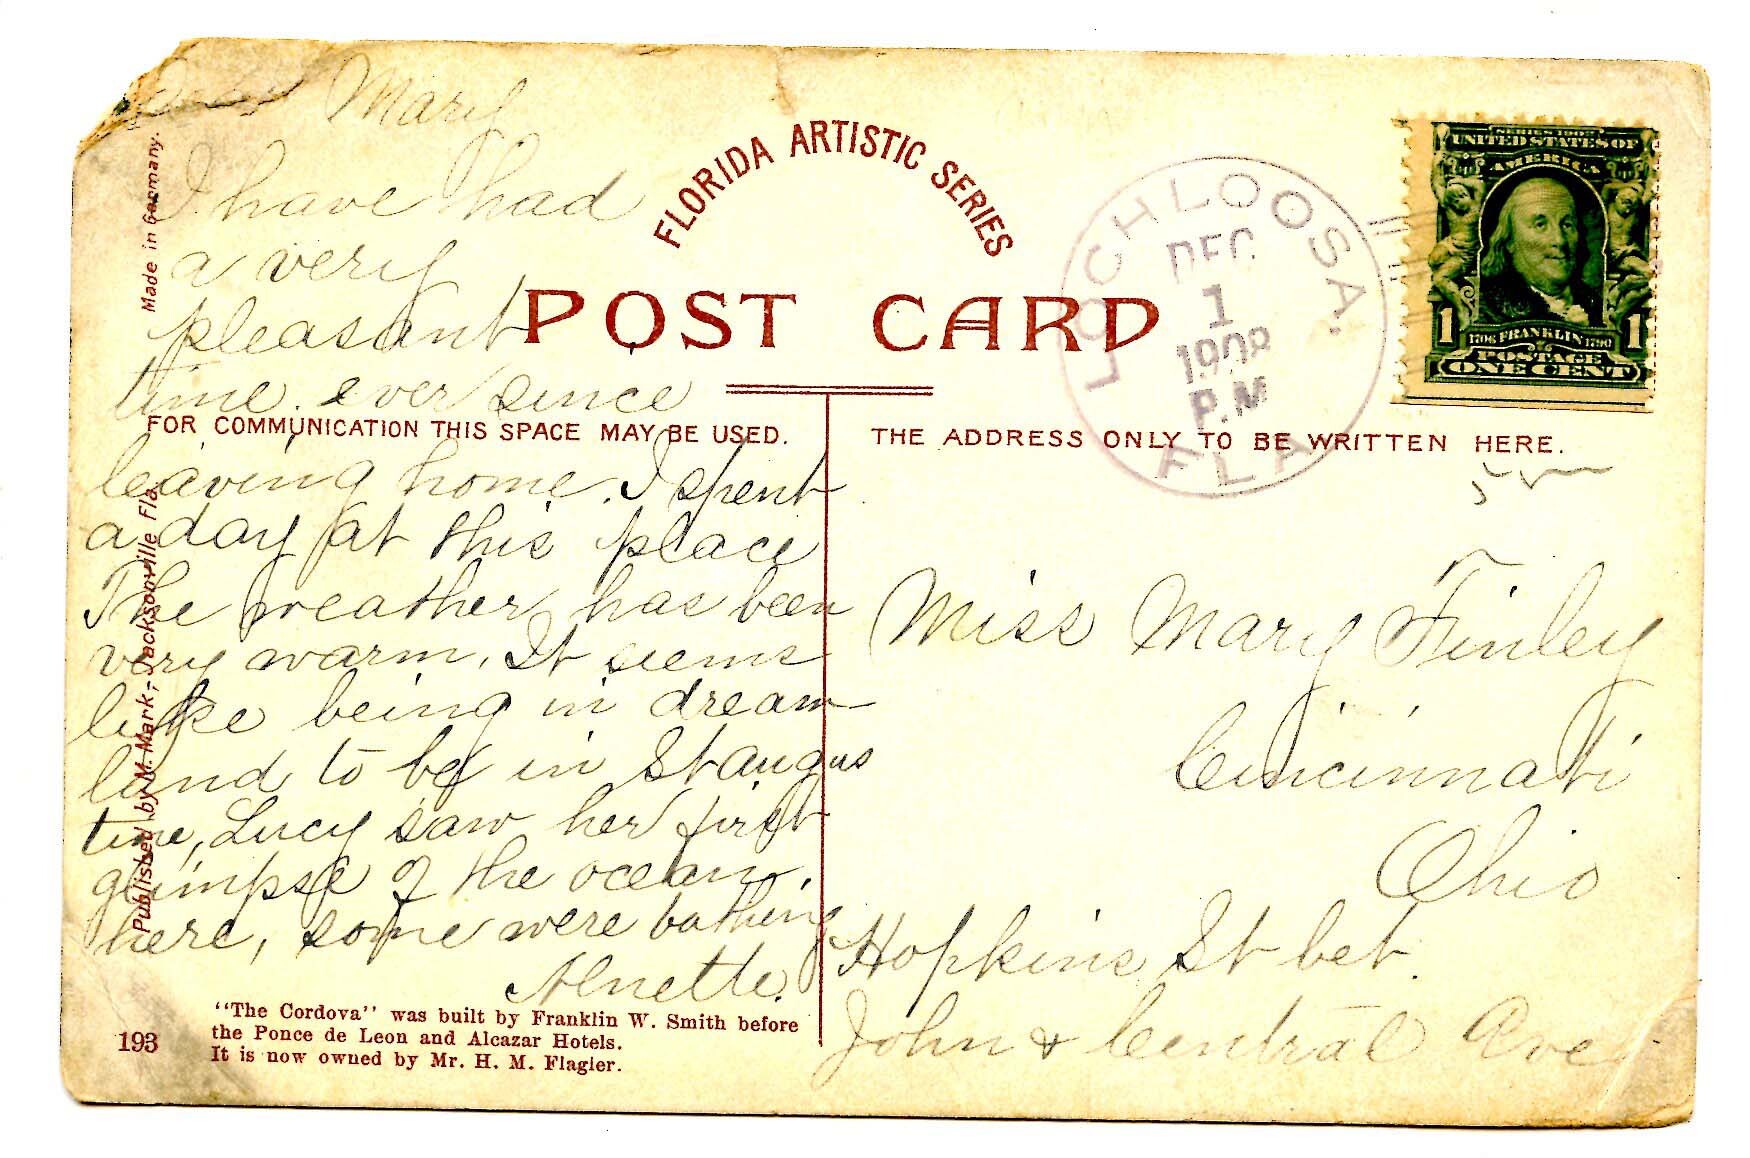 Dear Mary
I have had
a very
pleasant
time. ever since
leaving home. I spent
a day at this place
The weather has been
very warm. It seems
like being in dream
land to be in St Augus
tine, Lucy saw her first
glimpse of the ocean.
here, some were bathing
FLORIDA ARTISTIC SERIES
POST CARD
FOR COMMUNICATION THIS SPACE MAY BE USED.
THE ADDRESS ONLY TO BE WRITTEN HERE.
Made in Germany.
Published by M. Mark, Jacksonville Fla.
LOCHLOOSA.
DEC
1
1908
P.M
FLA
SERIES 1902
UNITED STATES OF
AMERICA
1 1706 FRANKLIN 1790 1
POSTAGE
ONE CENT
Miss Mary Finley
Cincinnati
Ohio
Hopkins St bet.
John & Central Ave
193
"The Cordova" was built by Franklin W. Smith before
the Ponce de Leon and Alcazar Hotels.
It is now owned by Mr. H. M. Flagler.